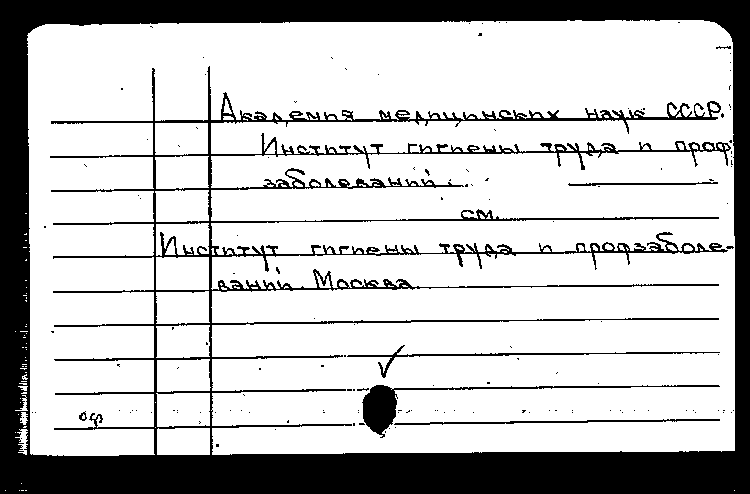 Академия медицинских наук СССР.
Институт гигиены труда и проф
заболеваний.
см.
Институт гигиены труда и профзаболе-
ваний. Москва.
оф